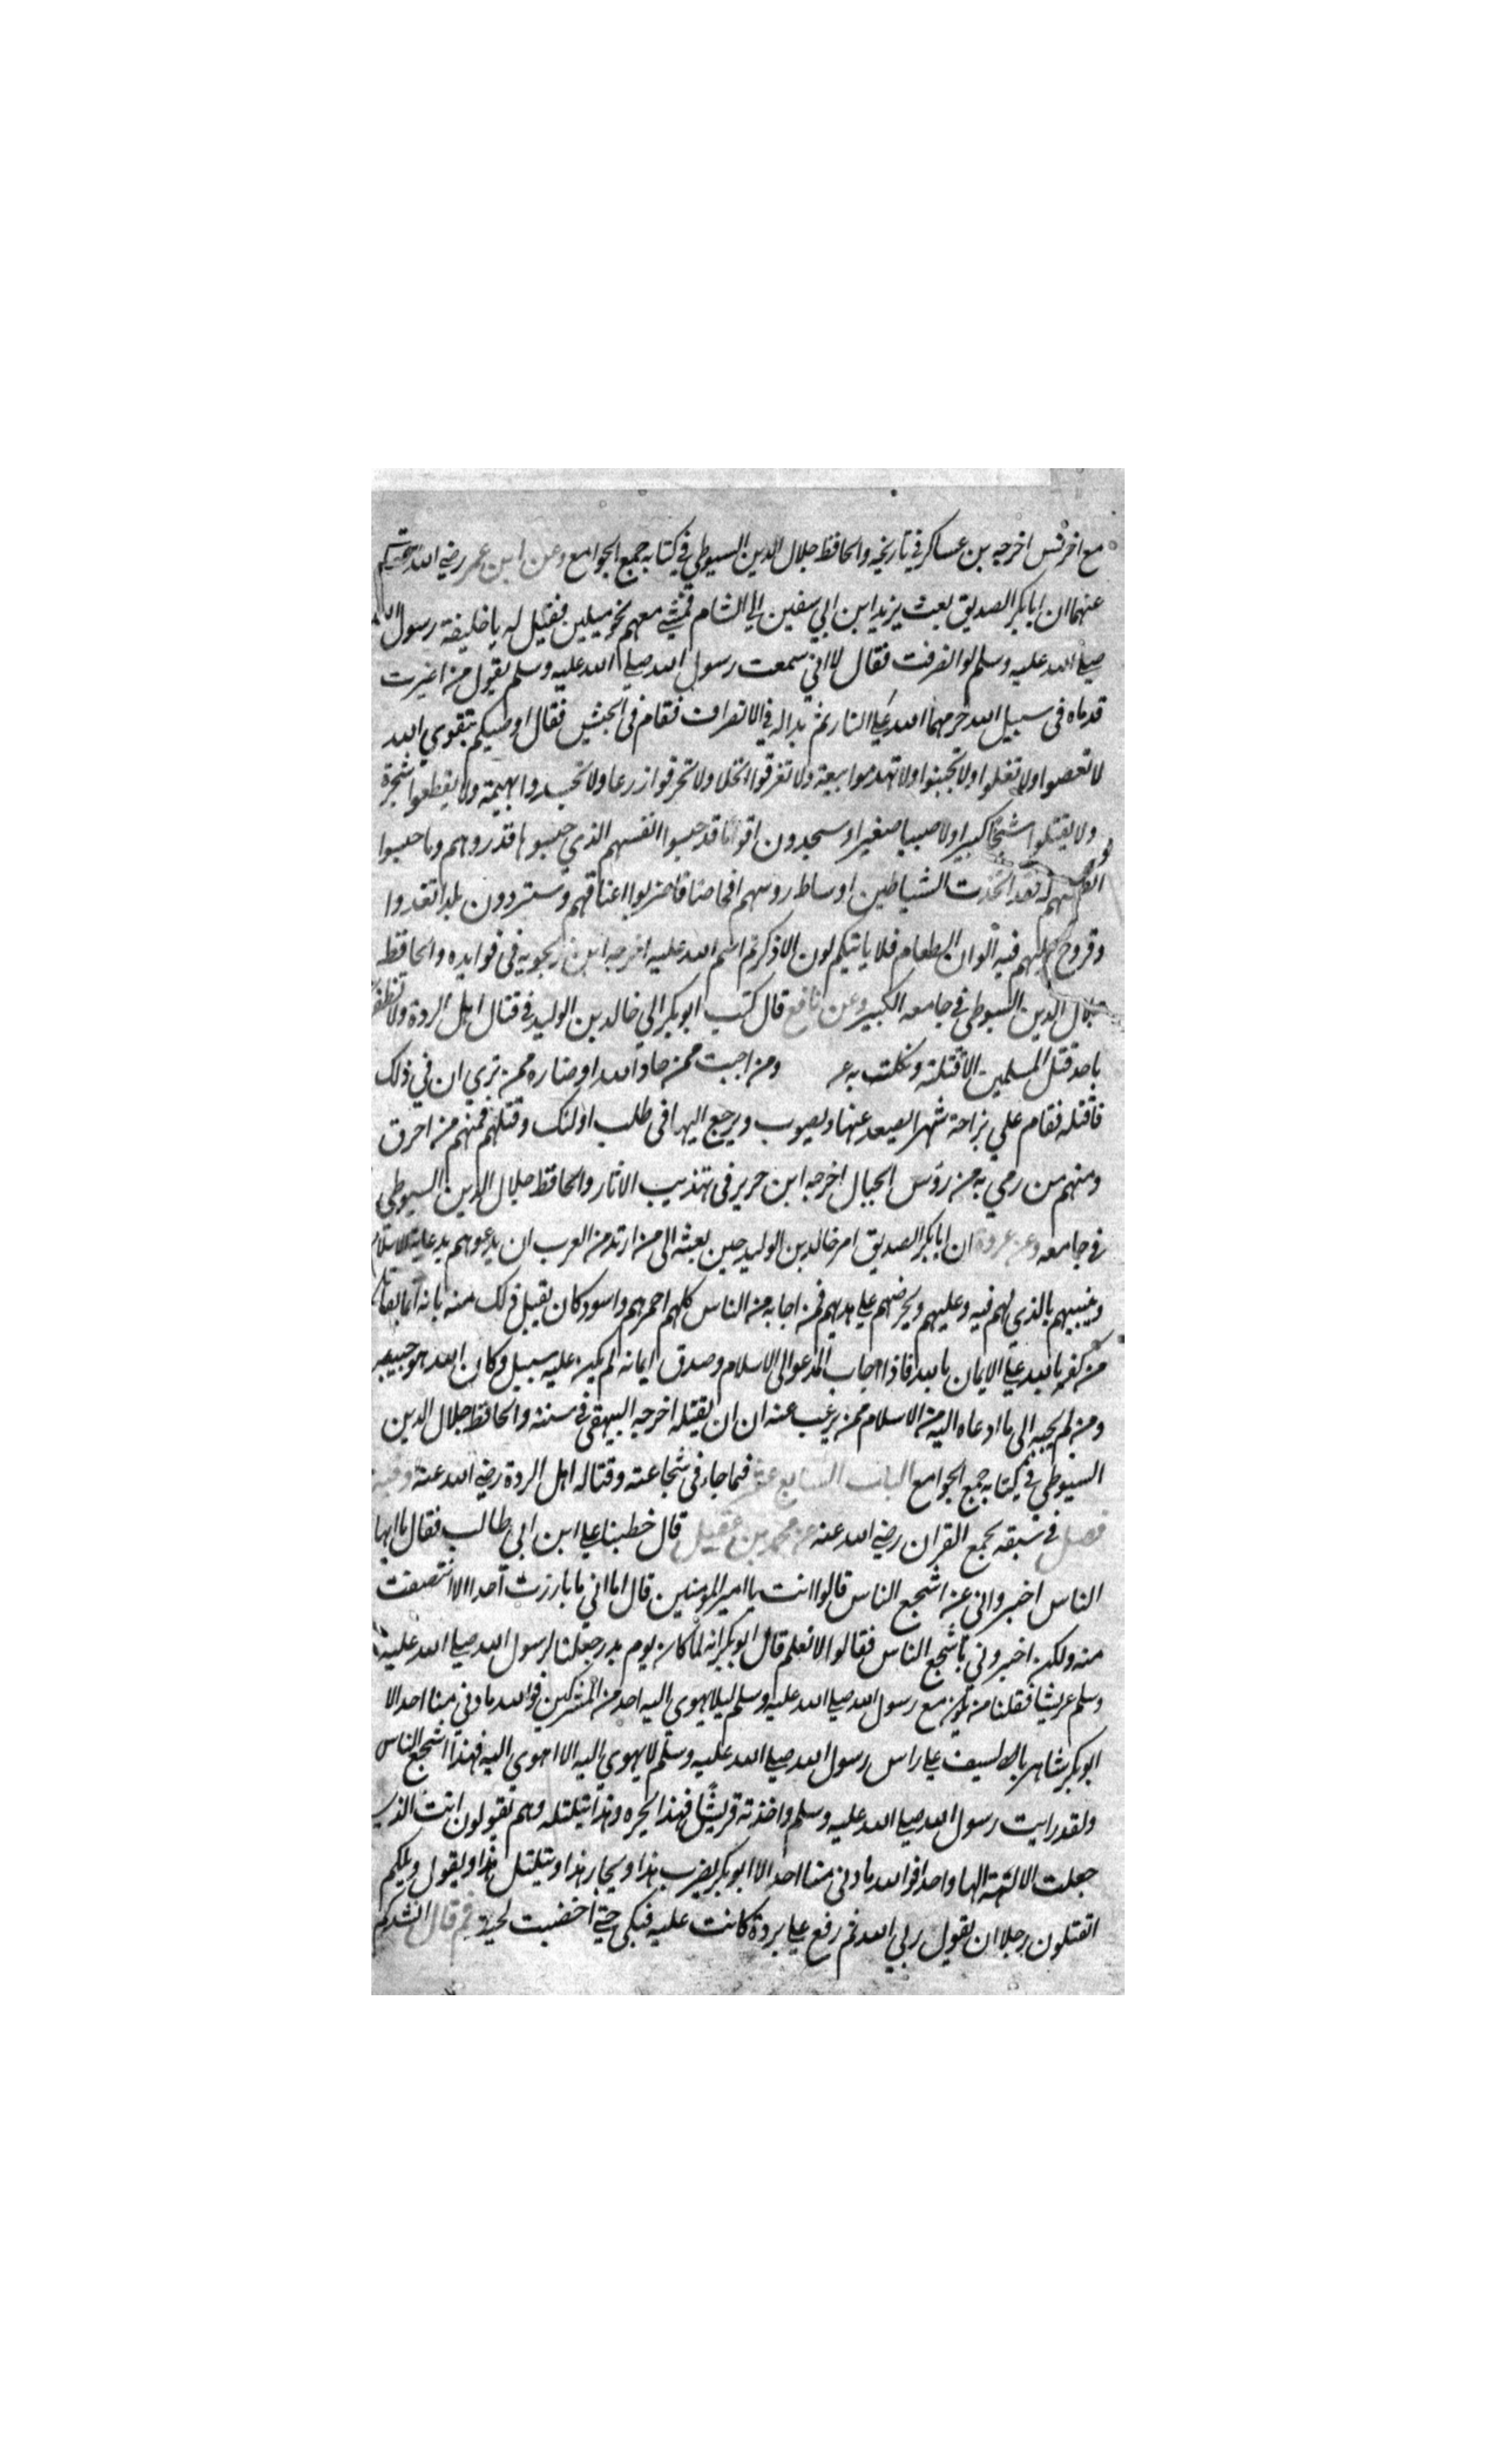 مع اخر فس اخرجه بن عساكر في تاريخه والحافظ جلال الدين السيوطي في كتابه جمع الجوامع وعن ابن عمر رضي الله
عنهما ان ابا بكر الصديق بعث يزيد ابن ابي سفين الي الشام فمشي معهم نحو ميلين فقيل له يا خليفة رسول الله
صلي الله عليه وسلم لو انصرفت فقال لا اني سمعت رسول الله صلي الله عليه وسلم يقول من اغبرت
قدماه في سبيل الله حرمهما الله علي النار ثم بدا له في الانصراف فقام في الجيش فقال اوصيكم بتقوي الله
لا تعصوا ولا تغلوا ولا تجبنوا ولا تهدموا بيعة ولا تغرقوا نخلا ولا تحرقوا زرعا ولا تجسدوا بهيمة ولا يقطعوا شجرة
ولا يقتلوا شيخا كبيرا ولا صبيا صغيرا وسجدون اقواما قد حبسوا انفسهم الذي حبسوها فذروهم وما حبسوا
انفسهم له فقد اتخذت الشياطين اوساط روسهم افحاصا فاضربوا اعناقهم وستردون بلدا تغدوا
وتروح عليهم فيه الوان الطعام فلا ياتيكم لون الا ذكرتم اسم الله عليه اخرجه ابن زنجويه في فوايده والحافظ
جلال الدين السيوطي في جامعه الكبير وعن نافع قال كتب ابو بكر الي خالد بن الوليد في قتال اهل الردة ولا تظفر
باحد قتل المسلمين الا قتلته ونكلت به ومن اجبت ممن حاد الله او ضاره ممن تري ان في ذلك
فاقتله فقام علي بزاخة شهرا يصعد عنها ويصوب ويرجع اليها في طلب اولئك وقتلهم فمنهم من احرق
ومنهم من رمي به من رؤس الجبال اخرجه ابن جرير في تهذيب الاثار والحافظ جلال الدين السيوطي
في جامعه وعن عروة ان ابا بكر الصديق امر خالد بن الوليد حين بعثه الي من ارتد من العرب ان يدعوهم بدعاية الاسلام
وينبيهم بالذي لهم فيه وعليهم ويحرضهم علي هديهم فمن اجابه من الناس كلهم احمرهم واسود كان يقبل ذلك منه بانه انما يقاتل
من كفر بالله علي الايمان بالله فاذا اجاب المدعو الي الاسلام وصدق ايمانه لم يكن عليه سبيل وكان الله هو حسيبه
ومن لم يجبه الي ما ادعاه اليه من الاسلام ممن يرغب عنه ان ان يقتله اخرجه البيهقي في سننه والحافظ جلال الدين
السيوطي في كتابه جمع الجوامع الباب السابع عشر فيما جاء في شجاعته وقتاله اهل الردة رضي الله عنه وفيه
فصل في سبقه بجمع القران رضي الله عنه عن محمد بن عقيل قال خطبنا علي ابن ابي طالب فقال يا ايها
الناس اخبرواني عن اشجع الناس قالوا انت يا امير المومنين قال اما اني ما بارزت احدا الا انتصفت
منه ولكن اخبروني باشجع الناس فقالوا لا نعلم قال ابو بكر انه لما كان يوم بدر جعلنا لرسول الله صلي الله عليه
وسلم عريشا فقلنا من يكون مع رسول الله صلي الله عليه وسلم ليلا يهوي اليه احد من المشركين فوالله ما دني منا احد الا
ابو بكر شاهر بالسيف علي راس رسول الله صلي الله عليه وسلم لا يهوي اليه الا اهوي اليه فهذا اشجع الناس
ولقد رايت رسول الله صلي الله عليه وسلم واخذته قريش فهذا يجره وهذا يتلتله وهم يقولون انت الذي
جعلت الالهة الها واحدا فوالله ما دني منا احد الا ابو بكر يضرب هذا ويجار هذا ويتلتل هذا ويقول ويلكم
اتقتلون رجلا ان يقول ربي الله ثم رفع علي بردة كانت عليه فبكي حتي اخضبت لحيته ثم قال انشدكم